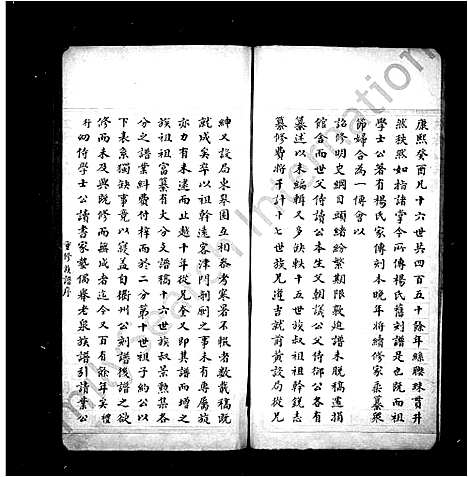 康熙癸酉凡十六世共四百五十餘年綿聯珠貫井
然秩然如指諸掌今所傳楊氏舊刻譜是也既而祖
學士公著有楊氏家傳刻本晚年將續修家乘纂
節婦合為一傳會以
詔修明史綱目頭緒紛繁期限嚴迫譜未脫稿遽捐
館舍而世父侍讀公本生父朝議公侍御公各有
纂述以未編輯又多缺軼十五世族叔祖幹銳志
纂修費將千計十七世族兄遵吉就前黄設局從兄
紳又設局東皋園互相參考寒暑不報者數載稿既
就成矣卒以祖幹遠客津門剞劂之事未有專屬旋
亦力有未逮而止越十年從兄奎又即其譜而增之
族叔祖富纂有大分支譜稿十五世族祖景勲集各
分之譜業料費付梓而於二分第十世祖子約公以
下表系獨缺事竟以寢蓋自衢州公刻譜後譜之欲
修而未及與既修而無成者迄今又百有餘年矣禮
升幼侍學士公讀書家塾偶舉老泉族譜引請業公
重修族譜序